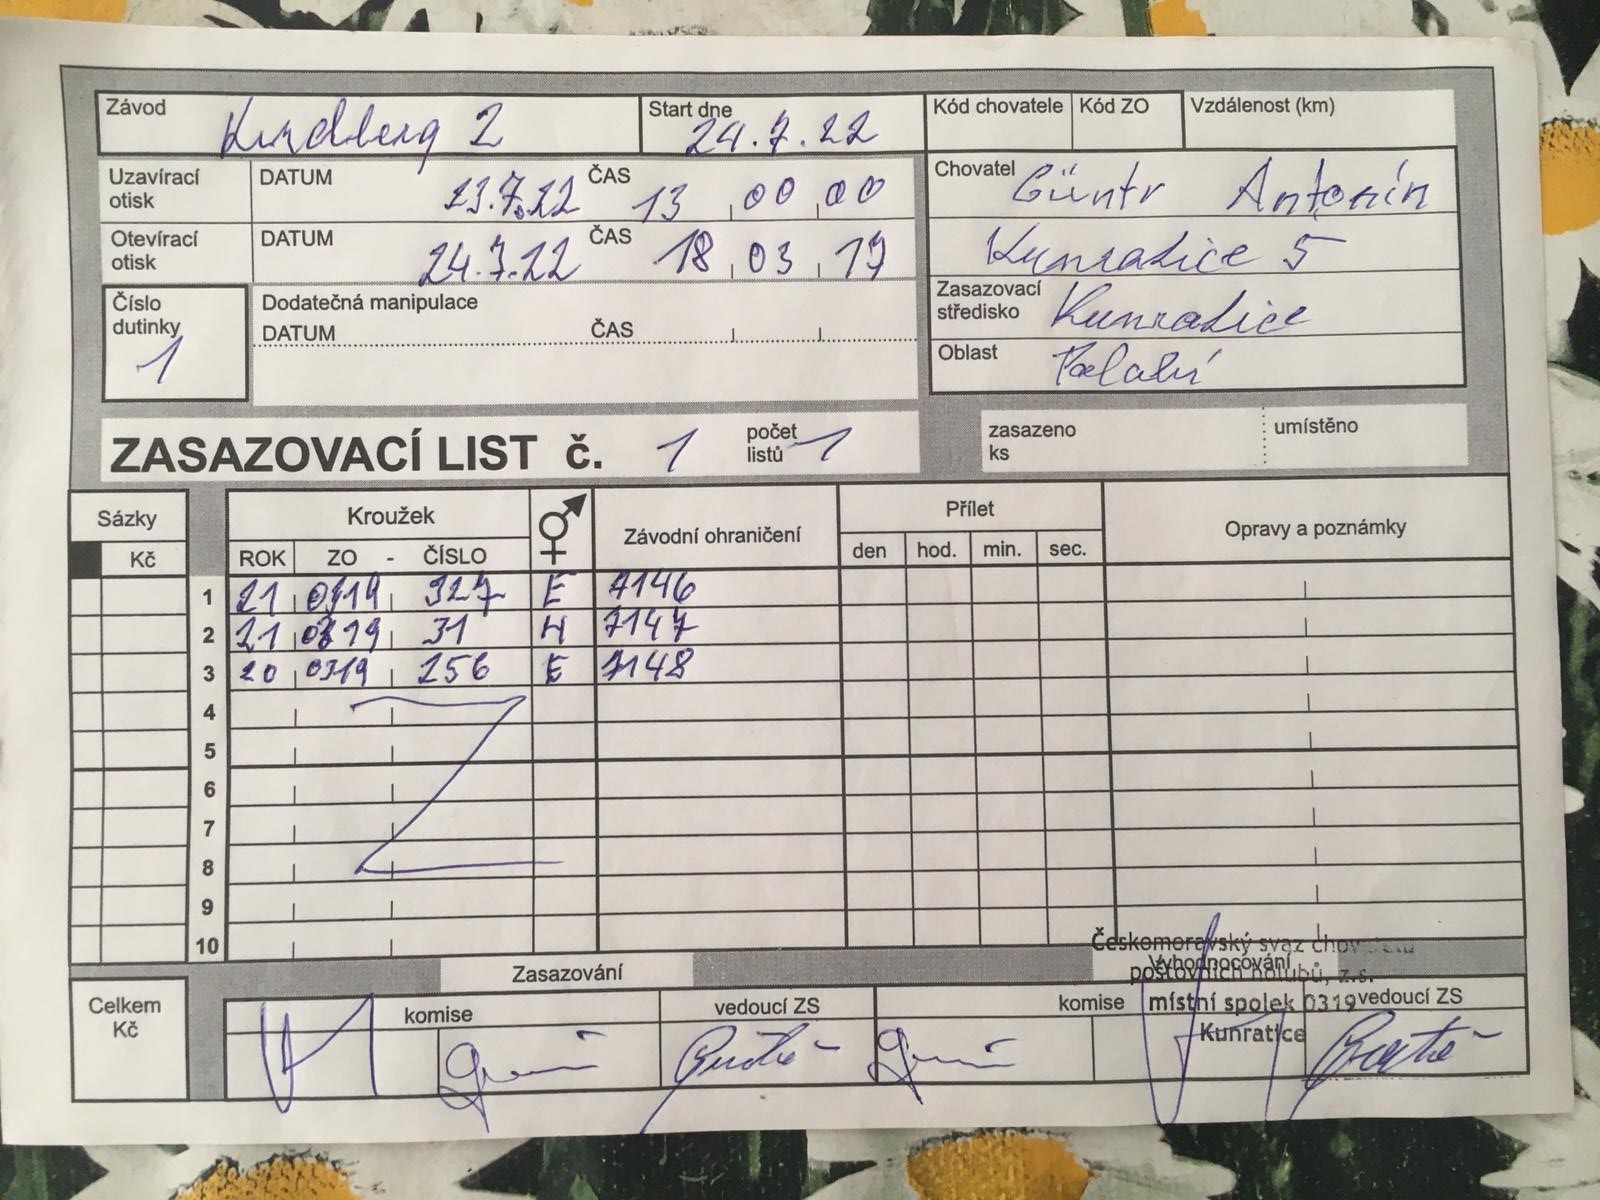 Závod 2 Start dne 24.7.22 Kód chovatele Kód ZO Vzdálenost (km)
Uzavírací otisk DATUM 23.7.22 ČAS 13 00 00 Chovatel Güntr Antonín
Kunratice 5
Otevírací otisk DATUM 24.7.22 ČAS 18 03 Zasazovací středisko Kunratice
Číslo dutinky 1 Dodatečná manipulace
DATUM ČAS Oblast
ZASAZOVACÍ LIST č. 1 počet listů 1 zasazeno ks umístěno
Sázky Kroužek Závodní ohraničení Přílet Opravy a poznámky
Kč ROK ZO - ČÍSLO den hod. min. sec.
1 21 0319 327 E 7146
2 21 0319 31 H 7147
3 20 0319 256 E 7148
4
5
6
7
8
9
10
Českomoravský svaz
Zasazování Vyhodnocování
poštovních holubů, z.s.
Celkem Kč komise vedoucí ZS komise místní spolek 0319 vedoucí ZS
Kunratice